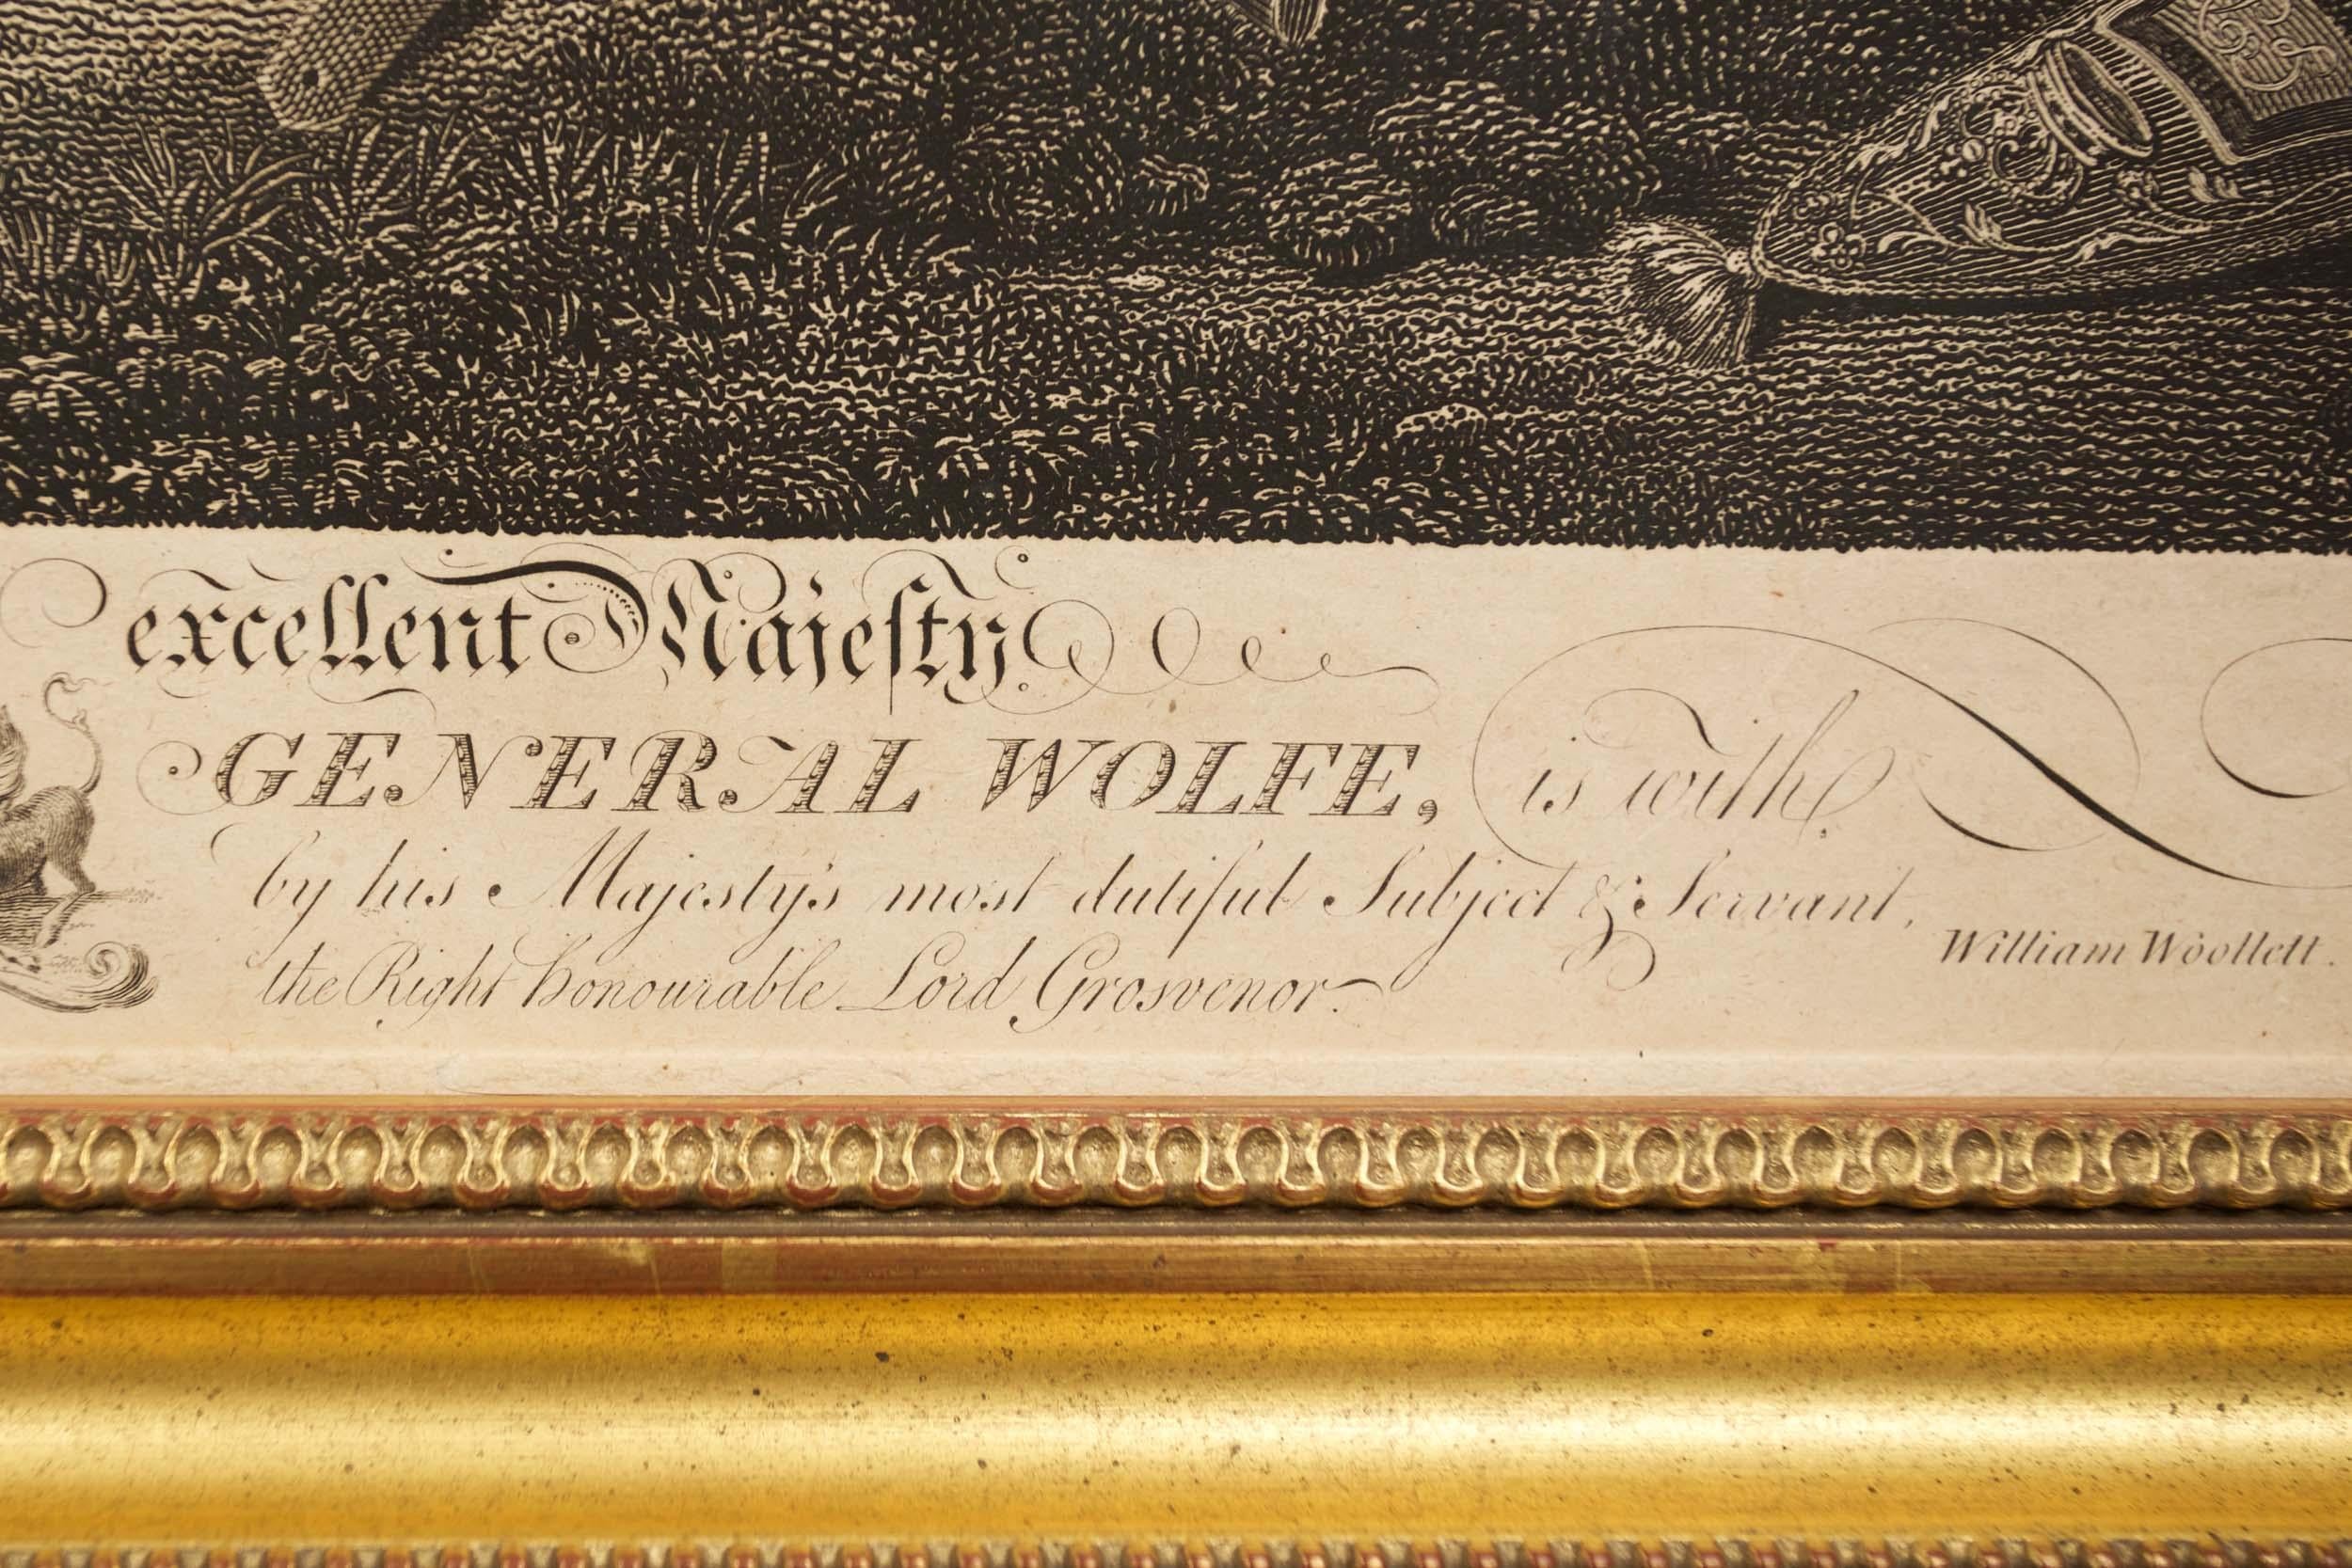 excellent Majesty
GENERAL WOLFE, is with
by his Majesty's most dutiful Subject & Servant,
William Woollett.
the Right honourable Lord Grosvenor.